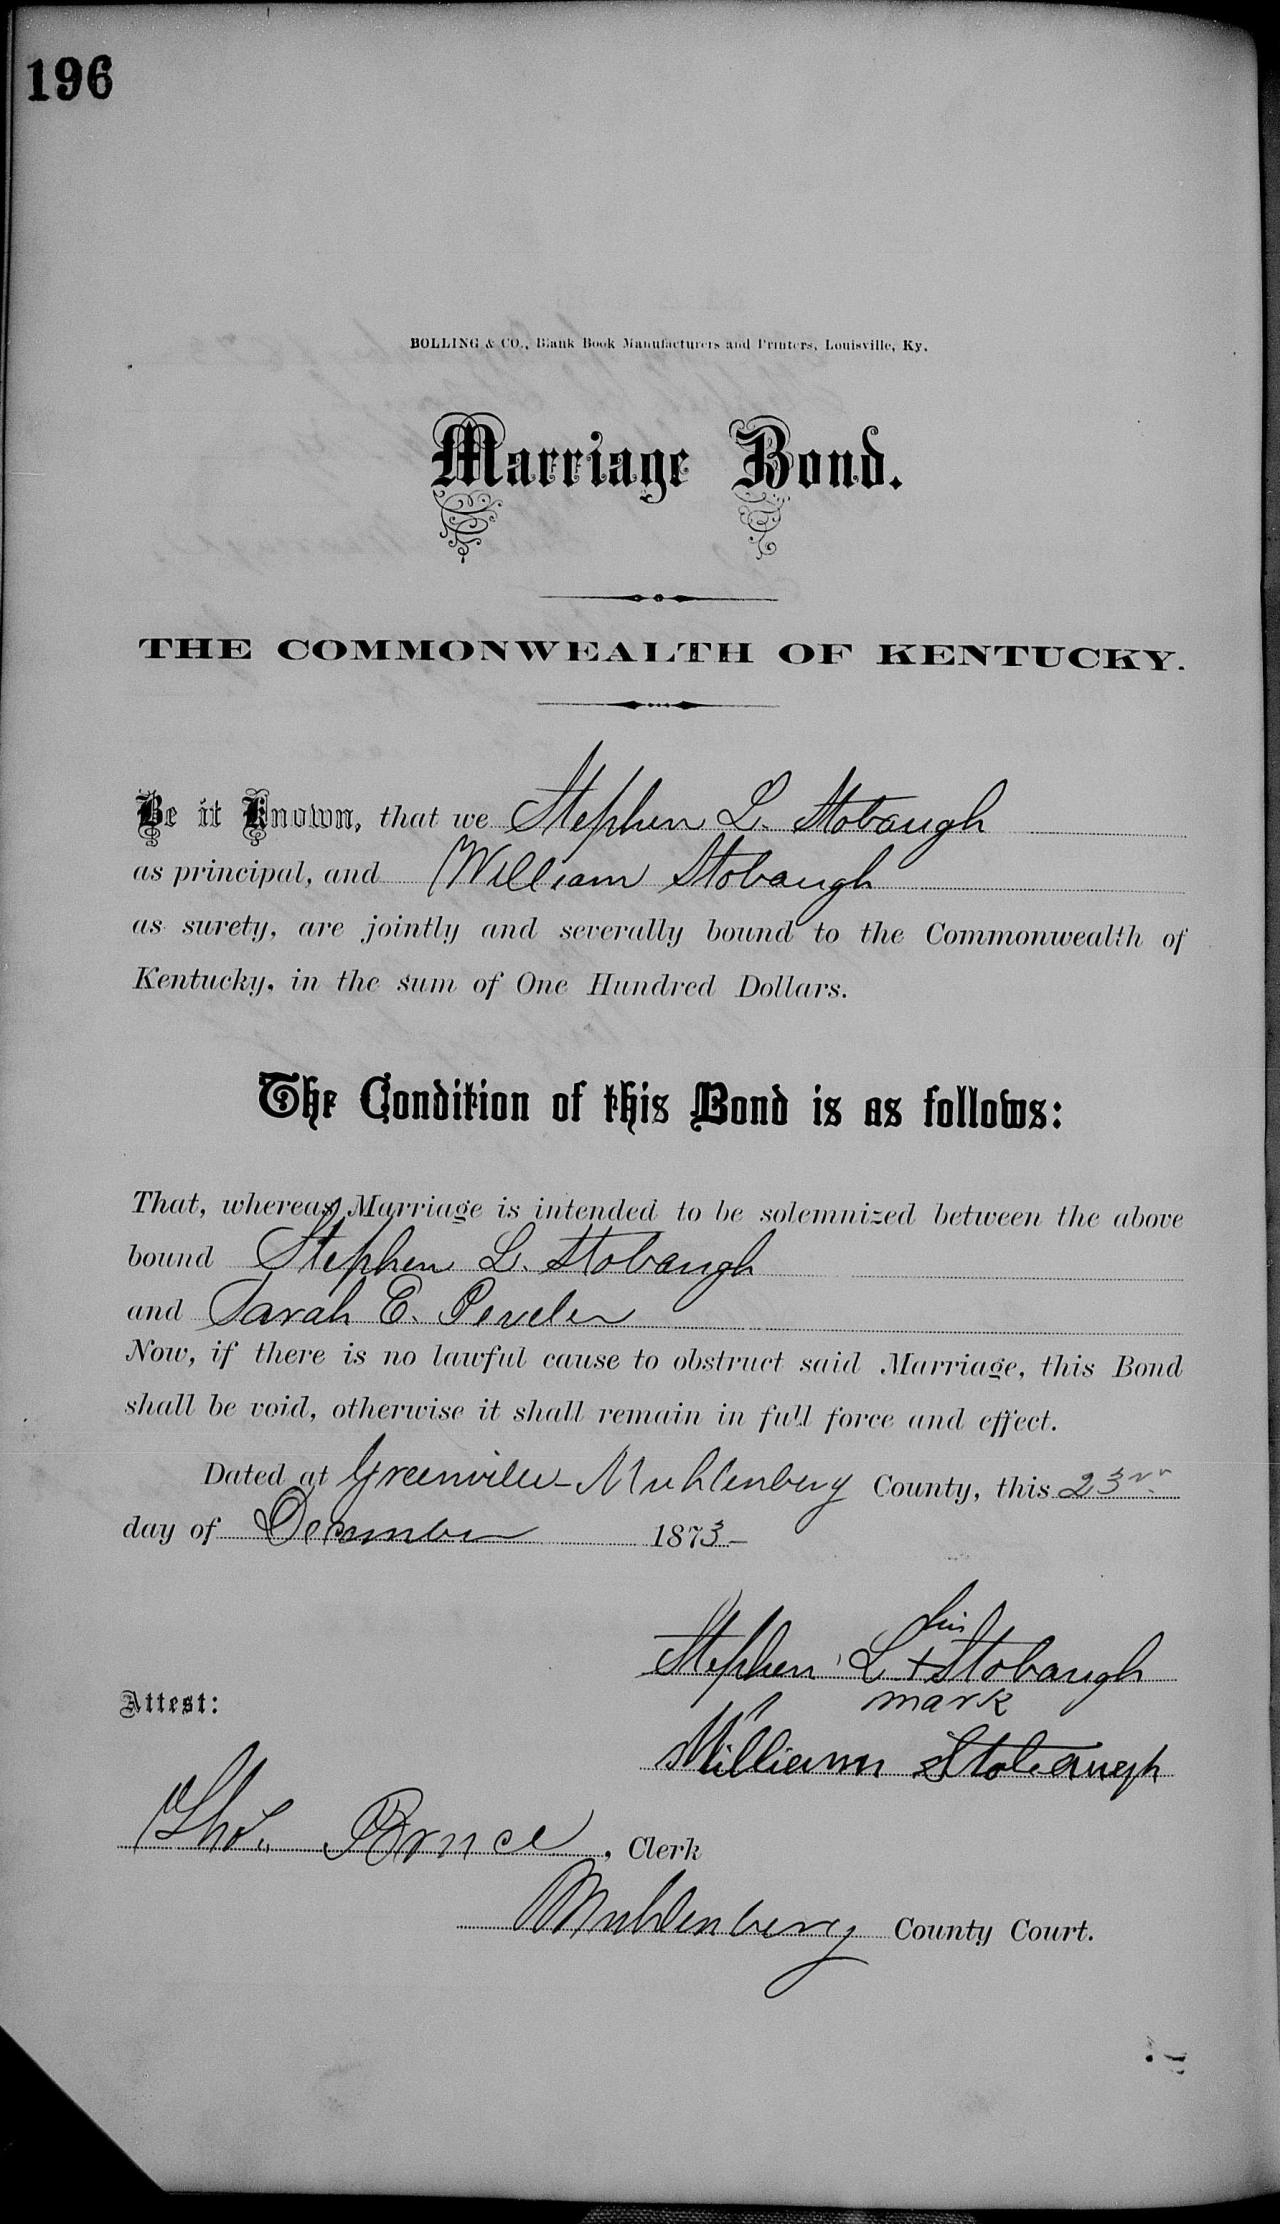 196
BOLLING & CO., Blank Book Manufacturers and Printers, Louisville, Ky.
Marriage Bond.
THE COMMONWEALTH OF KENTUCKY.
Be it Known, that we Stephen L. Stobaugh
as principal, and William Stobaugh
as surety, are jointly and severally bound to the Commonwealth of
Kentucky, in the sum of One Hundred Dollars.
The Condition of this Bond is as follows:
That, whereas Marriage is intended to be solemnized between the above
bound Stephen L. Stobaugh
and Sarah E. Peveler
Now, if there is no lawful cause to obstruct said Marriage, this Bond
shall be void, otherwise it shall remain in full force and effect.
Dated at Greenville - Muhlenberg County, this 23rd
day of December 1873-
his
Stephen L + Stobaugh
mark
Attest:
William Stobaugh
Tho. Bruce, Clerk
Muhlenberg County Court.